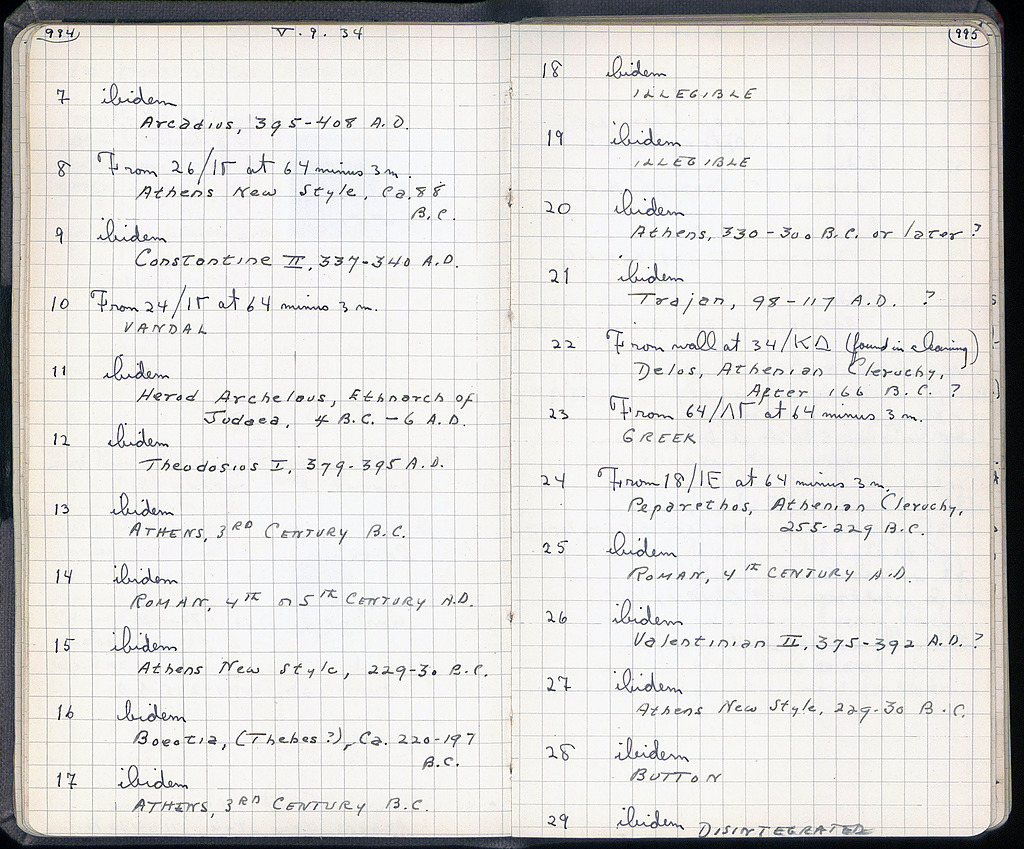 994
V . 9 . 34
7 ibidem
Arcadius, 395-408 A.D.
8 From 26/ΙΓ at 64 minus 3 m.
Athens New Style, Ca. 88
B.C.
9 ibidem
Constantine II, 337-340 A.D.
10 From 24/ΙΓ at 64 minus 3 m.
VANDAL
11 ibidem
Herod Archelaus, Ethnarch of
Judaea, 4 B.C. - 6 A.D.
12 ibidem
Theodosius I, 379-395 A.D.
13 ibidem
ATHENS, 3RD CENTURY B.C.
14 ibidem
ROMAN, 4TH or 5TH CENTURY A.D.
15 ibidem
Athens New Style, 229-30 B.C.
16 ibidem
Boeotia, (Thebes?), Ca. 220-197
B.C.
17 ibidem
ATHENS, 3RD CENTURY B.C.
995
18 ibidem
ILLEGIBLE
19 ibidem
ILLEGIBLE
20 ibidem
Athens, 330-300 B.C. or later ?
21 ibidem
Trajan, 98-117 A.D. ?
22 From wall at 34/ΚΔ (found in cleaning)
Delos, Athenian Cleruchy,
After 166 B.C. ?
23 From 64/ΛΓ at 64 minus 3 m.
GREEK
24 From 18/ΙΕ at 64 minus 3 m.
Peparethos, Athenian Cleruchy,
255-229 B.C.
25 ibidem
ROMAN, 4TH CENTURY A.D.
26 ibidem
Valentinian II, 375-392 A.D. ?
27 ibidem
Athens New Style, 229-30 B.C.
28 ibidem
BUTTON
29 ibidem DISINTEGRATED